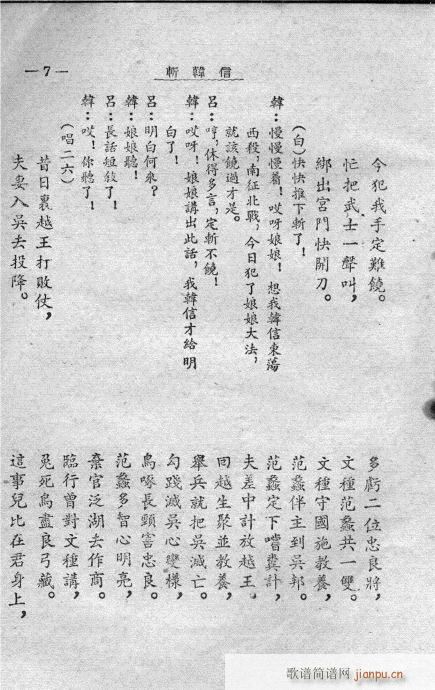 斬韓信
—7—
今犯我手定難饒。
忙把武士一聲叫，
綁出宮門快開刀。
(白)快快推下斬了！
韓：慢慢慢着！哎呀娘娘！想我韓信東蕩
西殺，南征北戰，今日犯了娘娘大法，
就該饒過才是。
呂：哼，休得多言，定斬不饒！
韓：哎呀！娘娘講出此話，我韓信才給明
白了！
呂：明白何來？
韓：娘娘聽！
呂：長話短敘了！
韓：哎！你聽了！
(唱二六)
昔日裏越王打敗仗，
夫妻入吳去投降。
多虧二位忠良將，
文種范蠡共一雙。
文種守國施教養，
范蠡伴主到吳邦。
范蠡定下嚐糞計，
夫差中計放越王。
回越生聚並教養，
舉兵就把吳滅亡。
勾踐滅吳心變樣，
鳥喙長頸害忠良。
范蠡多智心明亮，
棄官泛湖去作商。
臨行曾對文種講，
兎死鳥盡良弓藏。
這事兒比在君身上，
歌谱简谱网
jianpu.cn